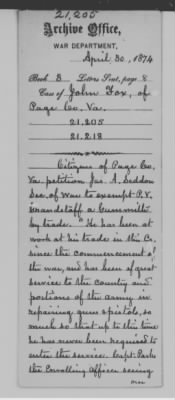 21,205
Archive Office,
WAR DEPARTMENT,
April 30, 1874
Book 3 Letters Sent, page 8
Case of John Fox, of
Page Co. Va.
21.205
21.218
Citizens of Page Co.
Va. petition Jas. A. Seddon
Sec. of War to exempt P.V.
a Gunsmith
by trade. "He has been at
work at his trade in this Co.
since the commencement of
the war, and has been of great
service to the country and
portions of the army in
repairing guns & pistols, so
much so that up to this time
he has never been required to
enter the service. Capt.
the Enrolling Officer seeing
over